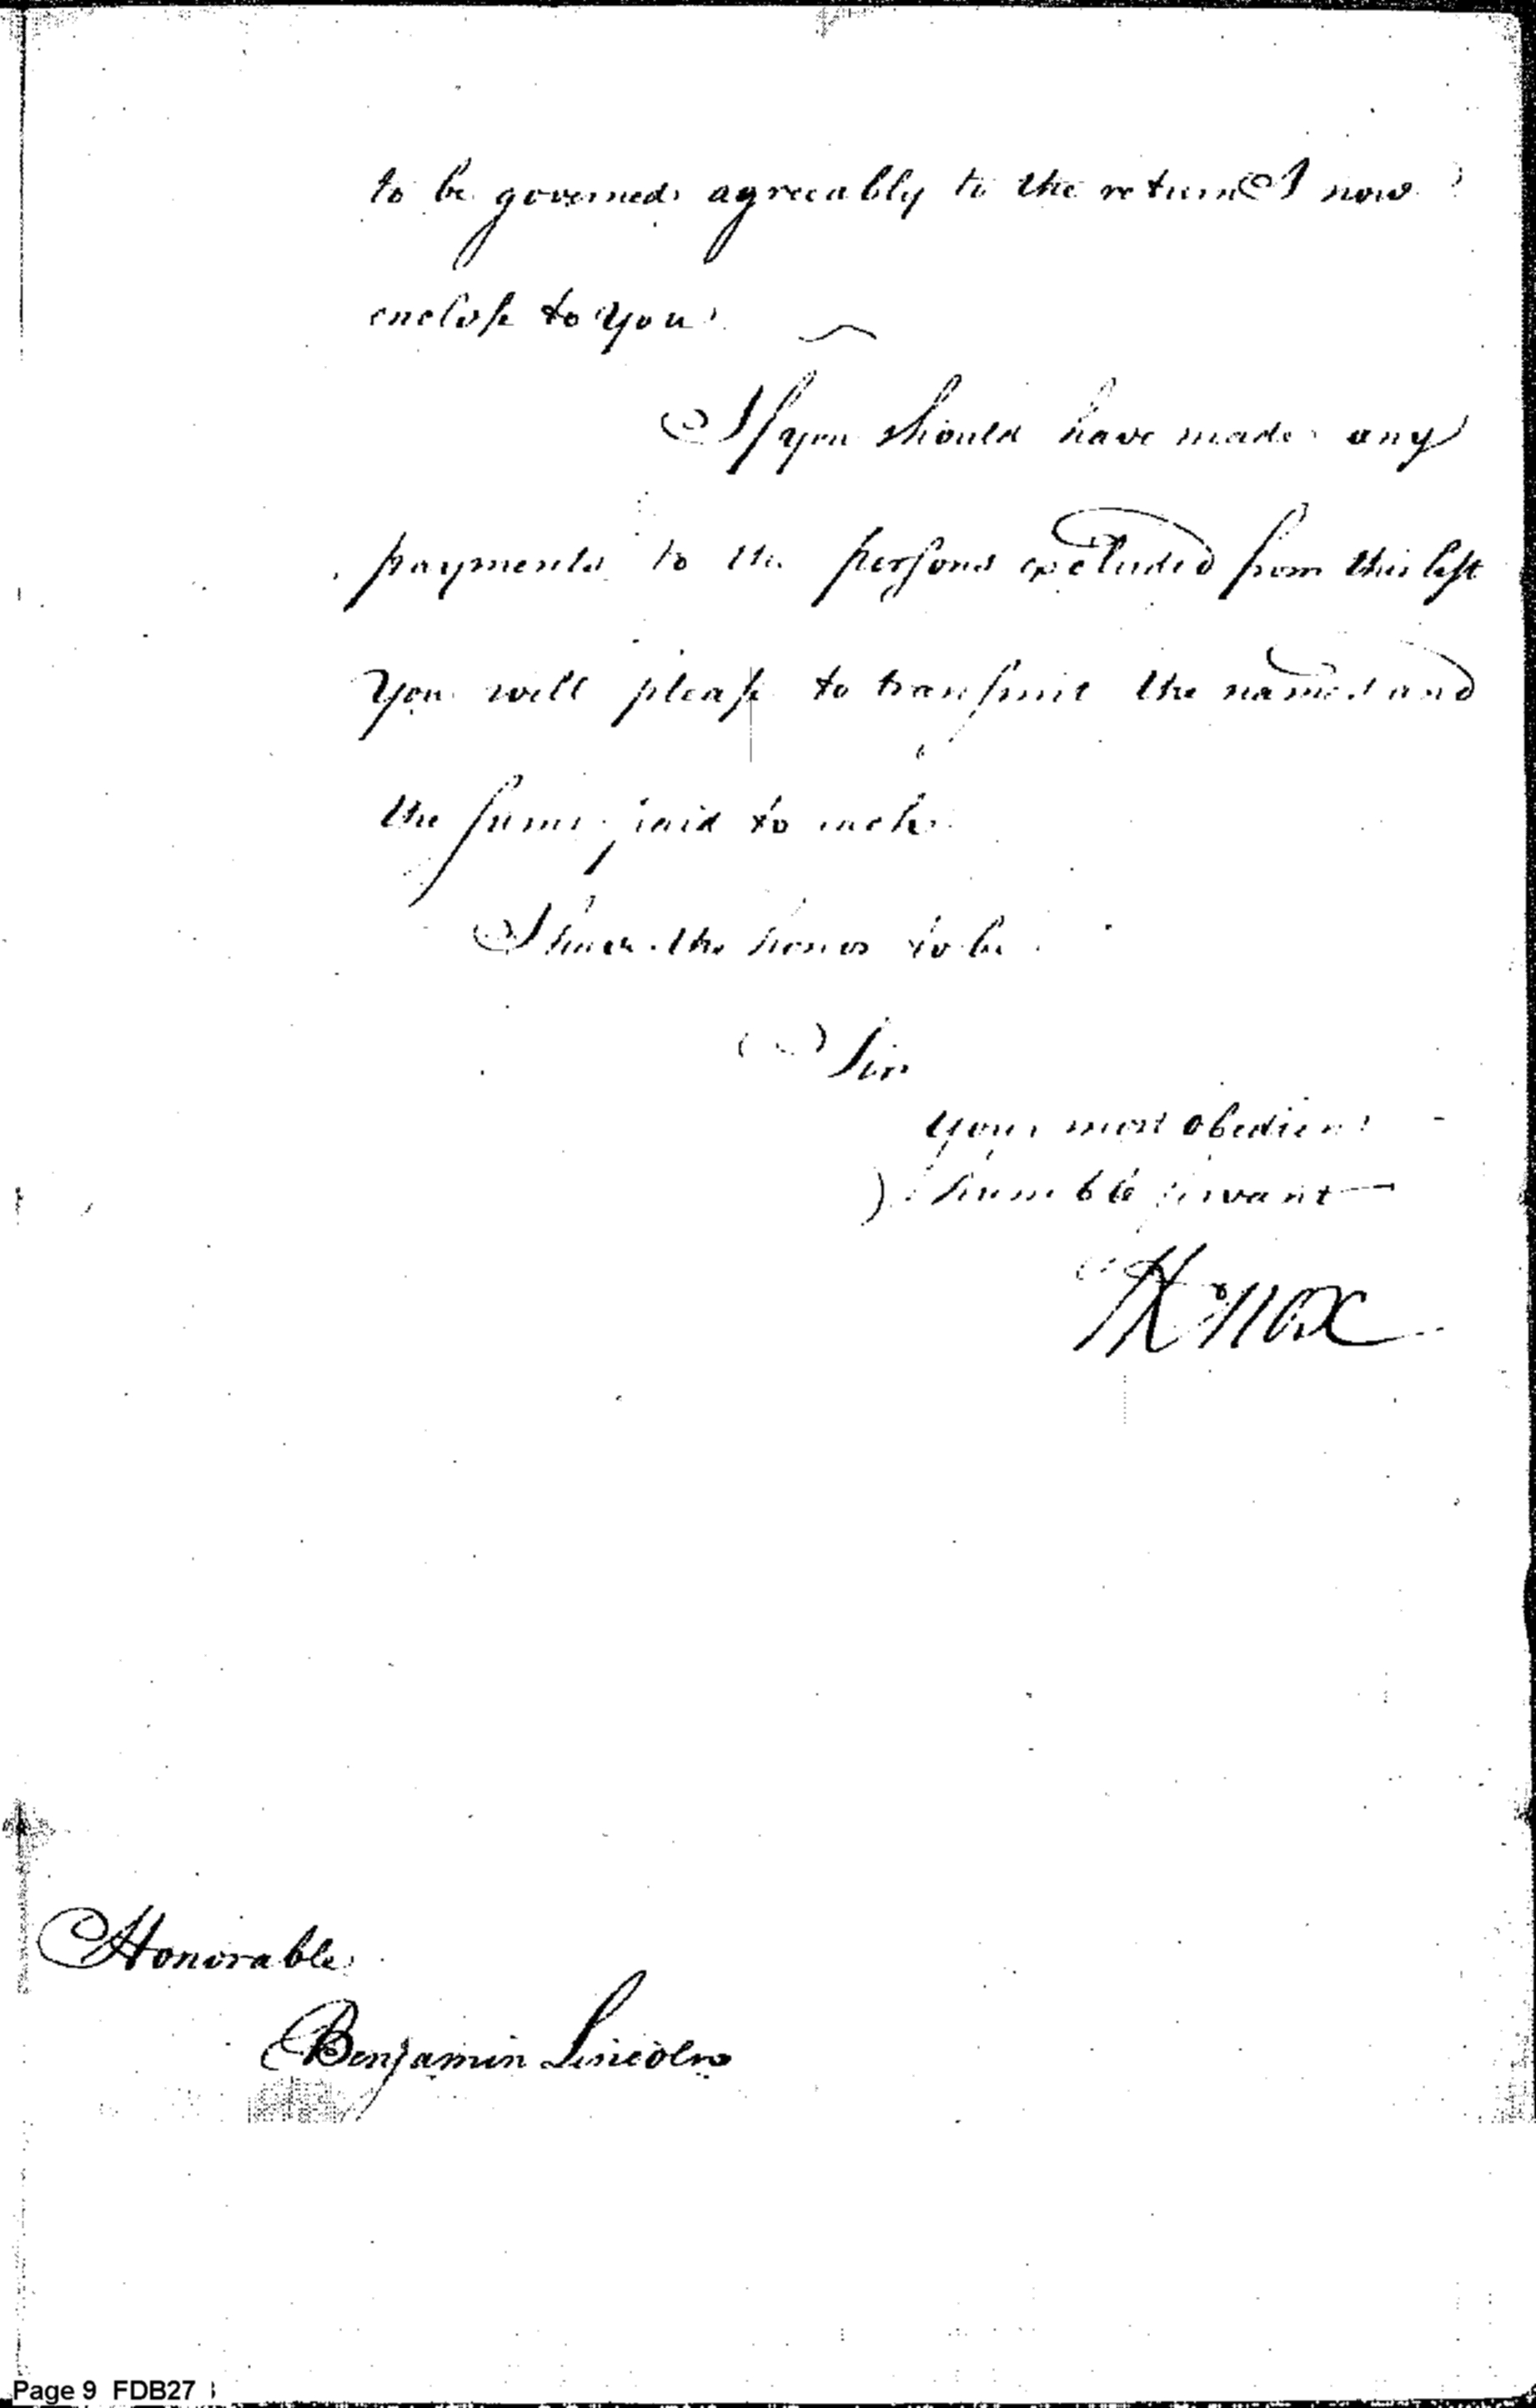 to be governed agreeably to the return I now
enclose to you
If you should have made any
payments to the persons excluded from this list
You will please to transmit the names and
the sums paid to each
I have the honor to be
Sir
Your most obedient
humble servant
HKnox
Honorable
Benjamin Lincoln
Page 9 FDB27